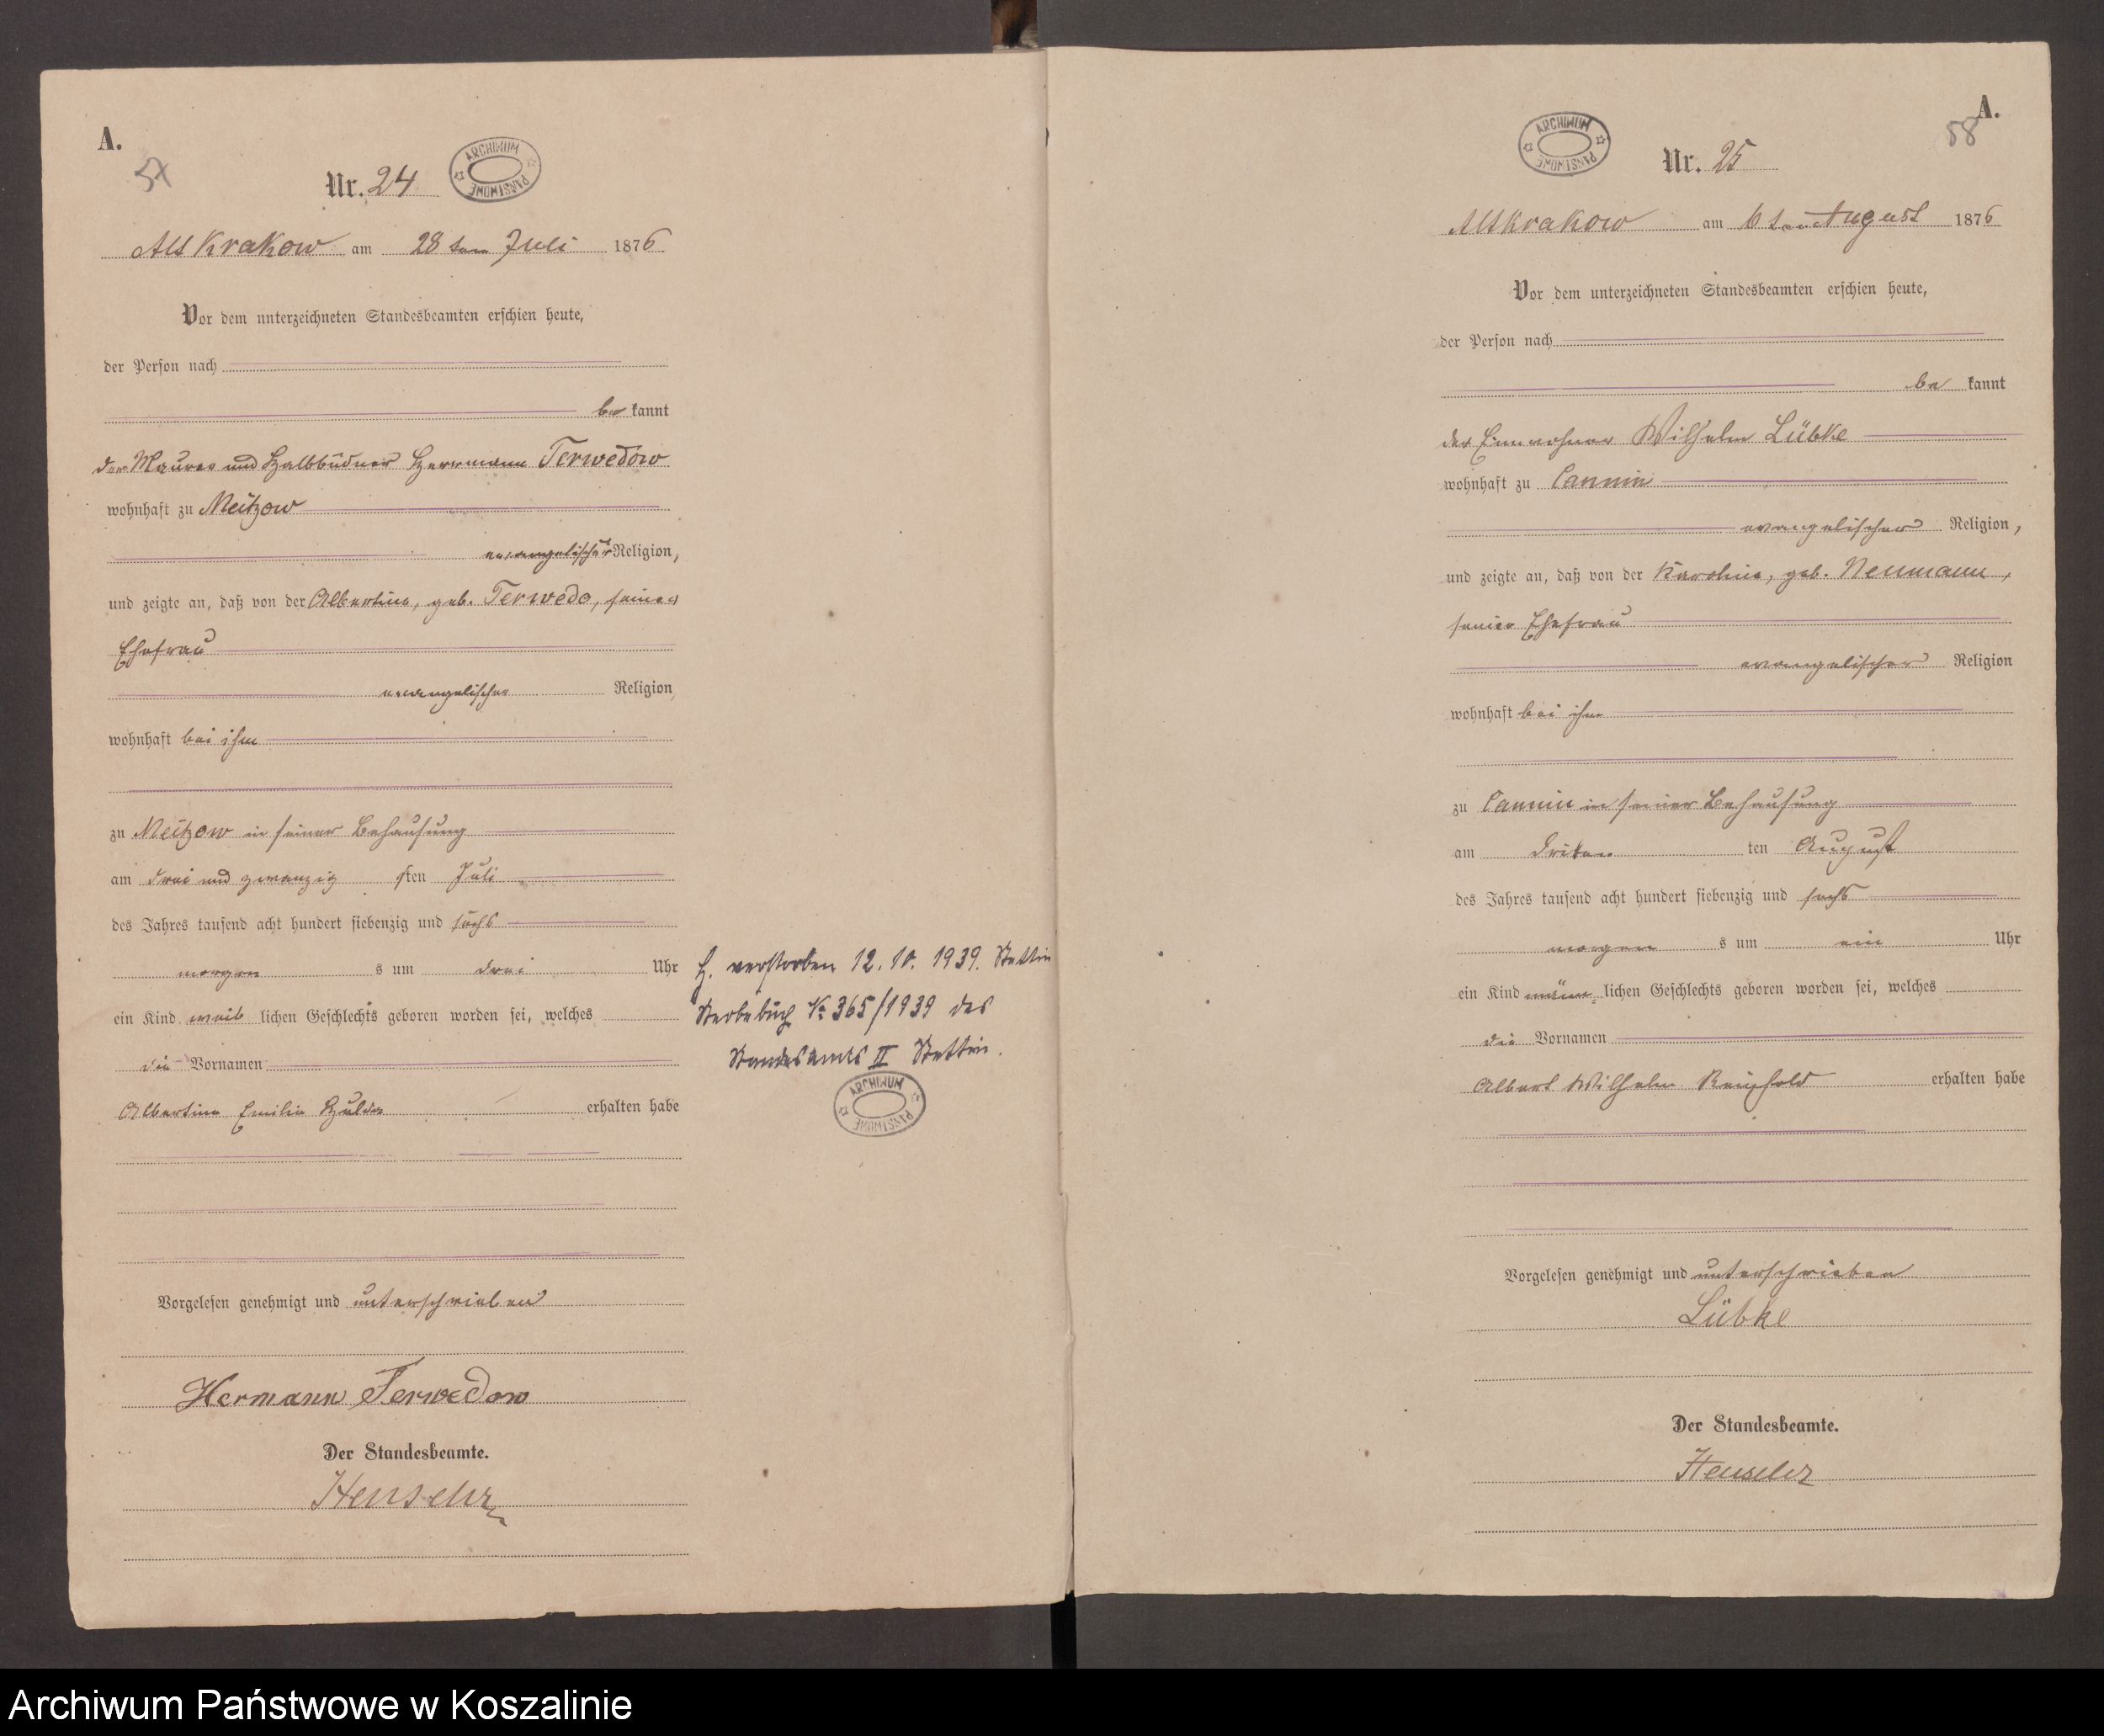 A.
57
Nr. 24
ARCHIWUM PAŃSTWOWE
Alt Krakow am 28ten Juli 1876
Vor dem unterzeichneten Standesbeamten erschien heute,
der Person nach
be kannt
der Maurer und Halbbüdner Herrmann Terwedow
wohnhaft zu Meitzow
evangelischer Religion,
und zeigte an, daß von der Albertine, geb. Terwedo, seiner
Ehefrau
evangelischer Religion,
wohnhaft bei ihm
zu Meitzow in seiner Behausung
am drei und zwanzig sten Juli
des Jahres tausend acht hundert siebenzig und sechs
morgen s um drei Uhr
ein Kind weib lichen Geschlechts geboren worden sei, welches
die Vornamen
Albertine Emilie Hulda erhalten habe
Vorgelesen genehmigt und unterschrieben
Hermann Terwedow
Der Standesbeamte.
H. verstorben 12.10.1939. Stettin
Sterbebuch No 365/1939 des
Standesamts II Stettin.
ARCHIWUM PAŃSTWOWE
A.
58
ARCHIWUM PAŃSTWOWE
Nr. 25
Alt Krakow am 6ten August 1876
Vor dem unterzeichneten Standesbeamten erschien heute,
der Person nach
be kannt
der Einwohner Wilhelm Lübke
wohnhaft zu Cannin
evangelischer Religion,
und zeigte an, daß von der Karoline, geb. Neumann,
seiner Ehefrau
evangelischer Religion
wohnhaft bei ihm
zu Cannin in seiner Behausung
am dritten ten August
des Jahres tausend acht hundert siebenzig und sechs
morgen s um ein Uhr
ein Kind männ lichen Geschlechts geboren worden sei, welches
die Vornamen
Albert Wilhelm Reinhold erhalten habe
Vorgelesen genehmigt und unterschrieben
Lübke
Der Standesbeamte.
Archiwum Państwowe w Koszalinie